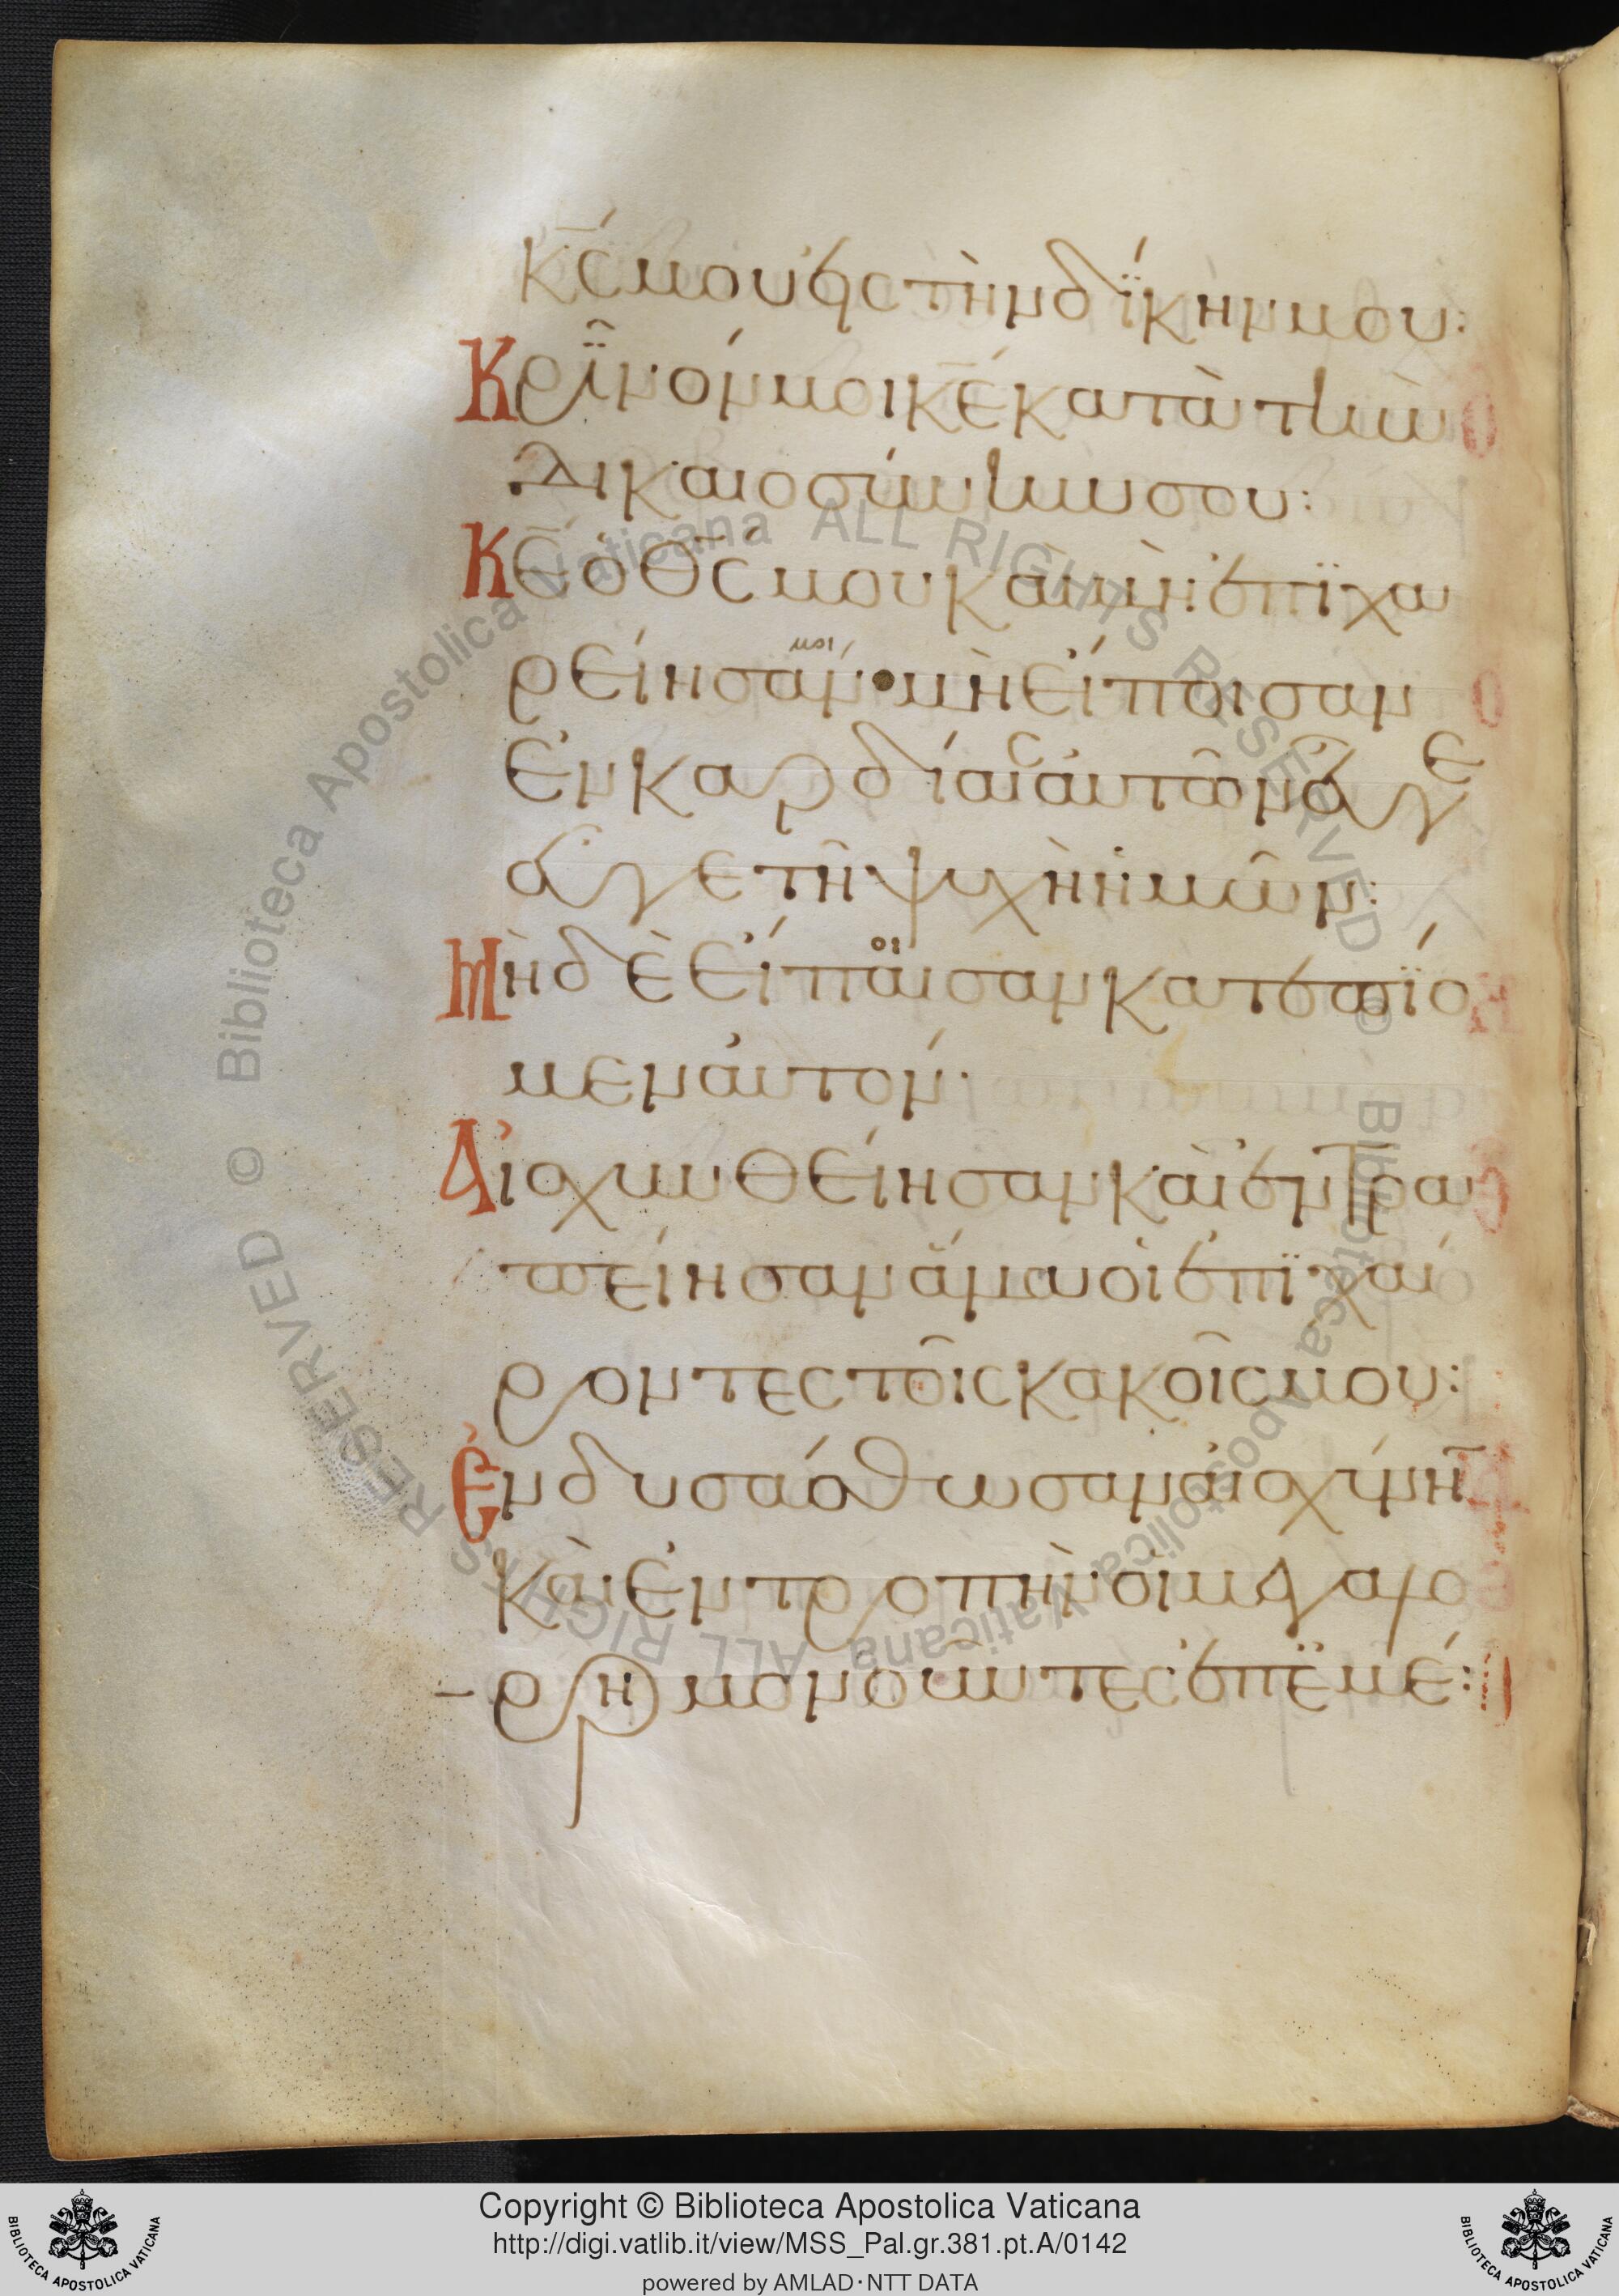 κ̅ς́ μου εἰς τὴν δΐκην μου:
Κρῖνόν μοι κ̅έ κατὰ τὴν
δικαιοσύνην σου:
Κ̅ε̅ ὁ θ̅ς́ μου καὶ μὴ ἐπϊχα
ρείησάν μοι · μὴ εἴποισαν
ἐν καρδίαις αὐτῶν εὖγε
εὖγε τῆ ψυχὴ ἡμῶν:
Μὴ δὲ εἴποισαν κατεπΐο
μεν αὐτόν·
Αἰσχυνθείησαν καὶ ἐντρα
πείησαν ἅμα οἱ ἐπϊχαί
ροντες τοῖς κακοῖς μου:
Ἐνδυσάσθωσαν αἰσχύνη̅
καὶ ἐντροπὴν οἱ μεγαλο
ρρημονοῦντες ἐπ' ἐμέ:
© Biblioteca Apostolica Vaticana ALL RIGHTS RESERVED © Biblioteca Apostolica Vaticana ALL RIGHTS RESERVED
Copyright © Biblioteca Apostolica Vaticana
http://digi.vatlib.it/view/MSS_Pal.gr.381.pt.A/0142
powered by AMLAD·NTT DATA
BIBLIOTECA APOSTOLICA VATICANA
BIBLIOTECA APOSTOLICA VATICANA